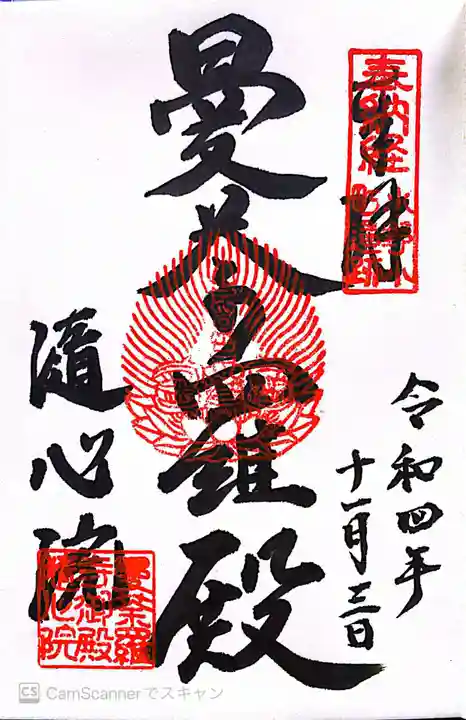 奉拝
奉納経
令和四年
十一月三日
曼荼羅殿
隨心院
CS CamScannerでスキャン